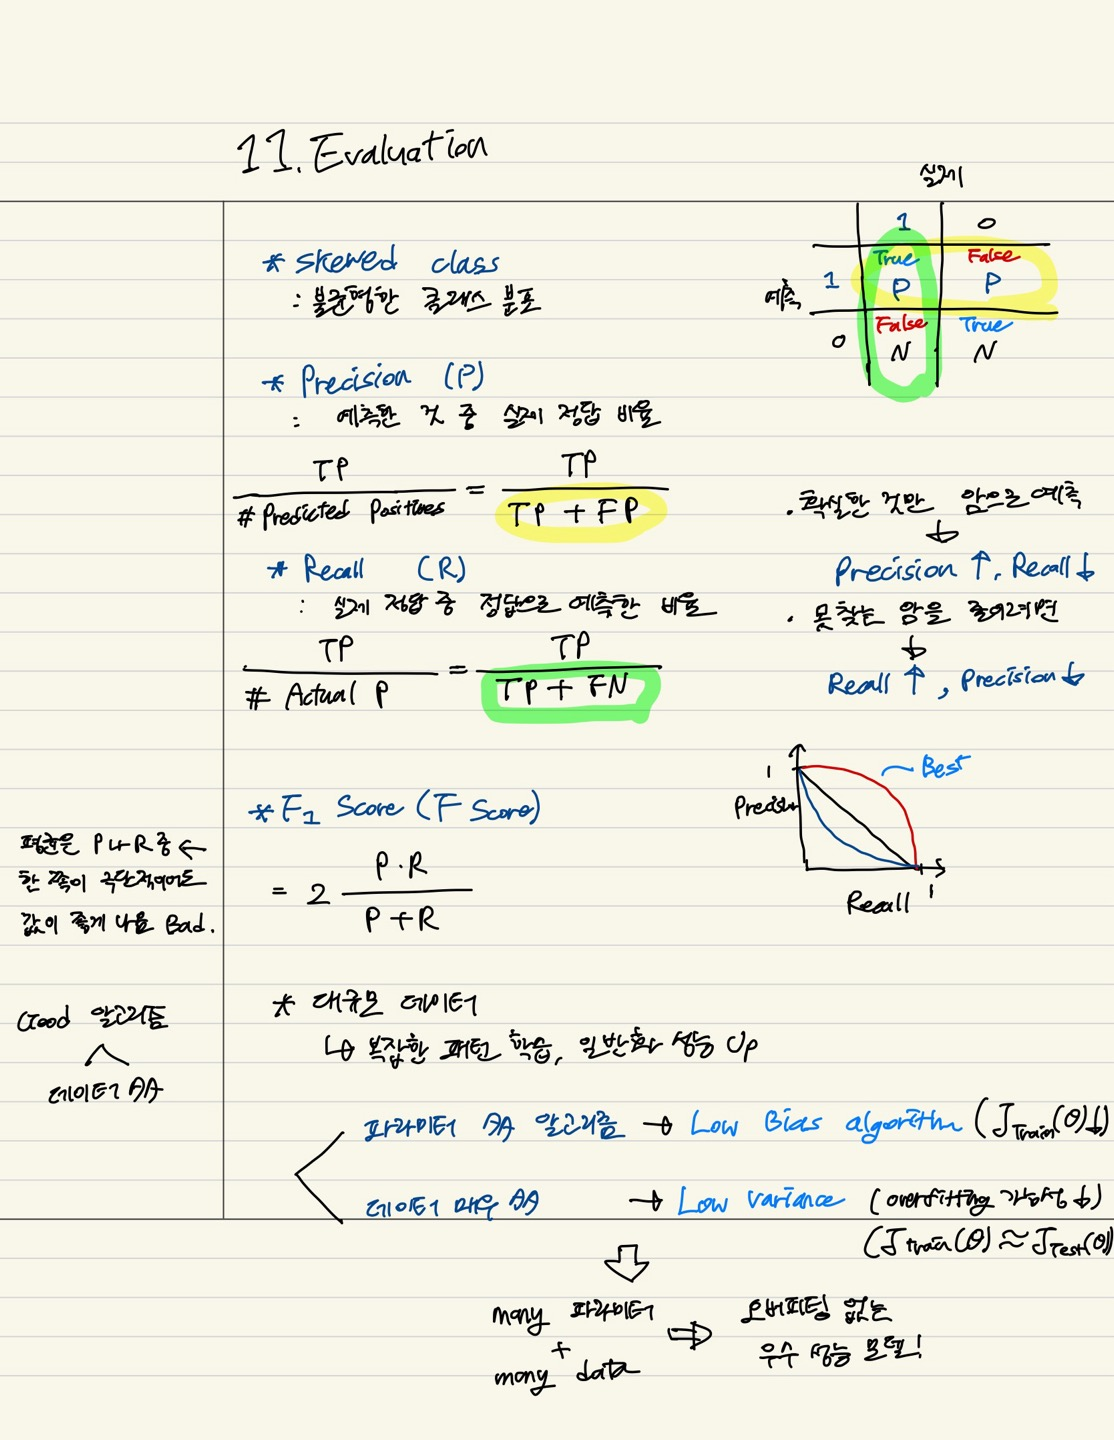 11. Evaluation
* skewed class
: 불균형한 클래스 분포
실제
1 0
예측 1 True P False P
0 False N True N
* Precision (P)
: 예측한 것 중 실제 정답 비율
TP / # Predicted Positives = TP / TP + FP
* Recall (R)
: 실제 정답 중 정답으로 예측한 비율
TP / # Actual P = TP / TP + FN
. 확실한 것만 암으로 예측
↓
Precision ↑, Recall ↓
. 못 찾는 암을 줄이려면
↓
Recall ↑, Precision ↓
1
Precision
Best
Recall 1
* F1 Score (F Score)
= 2 P·R / P+R
평균은 P나 R 중 ←
한 쪽이 극단적이어도
값이 좋게 나옴 Bad.
* 대규모 데이터
↳ 복잡한 패턴 학습, 일반화 성능 Up
Good 알고리즘
데이터 많
파라미터 많 알고리즘 → Low Bias algorithm (J Train(θ)↓)
데이터 매우 많 → Low variance (overfitting 가능성 ↓)
(J train(θ) ≈ J Test(θ))
⇩
many 파라미터
+
many data
⇒ 오버피팅 없는
우수 성능 모델!